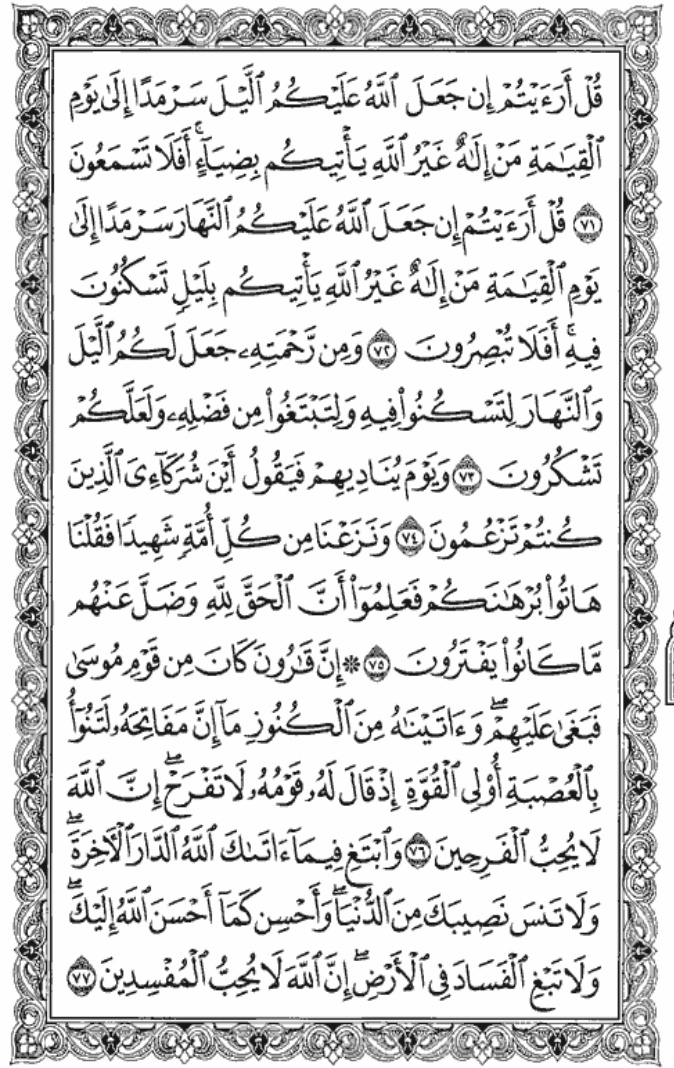 قُلْ أَرَءَيْتُمْ إِن جَعَلَ ٱللَّهُ عَلَيْكُمُ ٱلَّيْلَ سَرْمَدًا إِلَىٰ يَوْمِ
ٱلْقِيَٰمَةِ مَنْ إِلَٰهٌ غَيْرُ ٱللَّهِ يَأْتِيكُم بِضِيَآءٍ ۖ أَفَلَا تَسْمَعُونَ
٧١ قُلْ أَرَءَيْتُمْ إِن جَعَلَ ٱللَّهُ عَلَيْكُمُ ٱلنَّهَارَ سَرْمَدًا إِلَىٰ
يَوْمِ ٱلْقِيَٰمَةِ مَنْ إِلَٰهٌ غَيْرُ ٱللَّهِ يَأْتِيكُم بِلَيْلٍ تَسْكُنُونَ
فِيهِ ۚ أَفَلَا تُبْصِرُونَ ٧٢ وَمِن رَّحْمَتِهِۦ جَعَلَ لَكُمُ ٱلَّيْلَ
وَٱلنَّهَارَ لِتَسْكُنُوا۟ فِيهِ وَلِتَبْتَغُوا۟ مِن فَضْلِهِۦ وَلَعَلَّكُمْ
تَشْكُرُونَ ٧٣ وَيَوْمَ يُنَادِيهِمْ فَيَقُولُ أَيْنَ شُرَكَآءِىَ ٱلَّذِينَ
كُنتُمْ تَزْعُمُونَ ٧٤ وَنَزَعْنَا مِن كُلِّ أُمَّةٍ شَهِيدًا فَقُلْنَا
هَاتُوا۟ بُرْهَٰنَكُمْ فَعَلِمُوٓا۟ أَنَّ ٱلْحَقَّ لِلَّهِ وَضَلَّ عَنْهُم
مَّا كَانُوا۟ يَفْتَرُونَ ٧٥ ۞ إِنَّ قَٰرُونَ كَانَ مِن قَوْمِ مُوسَىٰ
فَبَغَىٰ عَلَيْهِمْ ۖ وَءَاتَيْنَٰهُ مِنَ ٱلْكُنُوزِ مَآ إِنَّ مَفَاتِحَهُۥ لَتَنُوٓأُ
بِٱلْعُصْبَةِ أُو۟لِى ٱلْقُوَّةِ إِذْ قَالَ لَهُۥ قَوْمُهُۥ لَا تَفْرَحْ ۖ إِنَّ ٱللَّهَ
لَا يُحِبُّ ٱلْفَرِحِينَ ٧٦ وَٱبْتَغِ فِيمَآ ءَاتَىٰكَ ٱللَّهُ ٱلدَّارَ ٱلْءَاخِرَةَ ۖ
وَلَا تَنسَ نَصِيبَكَ مِنَ ٱلدُّنْيَا ۖ وَأَحْسِن كَمَآ أَحْسَنَ ٱللَّهُ إِلَيْكَ ۖ
وَلَا تَبْغِ ٱلْفَسَادَ فِى ٱلْأَرْضِ ۖ إِنَّ ٱللَّهَ لَا يُحِبُّ ٱلْمُفْسِدِينَ ٧٧